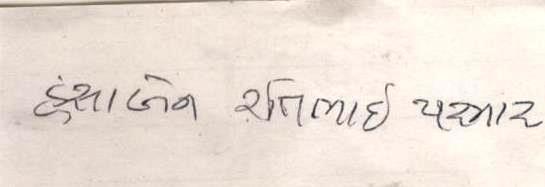 હંસાબેન રતિભાઈ પરમાર